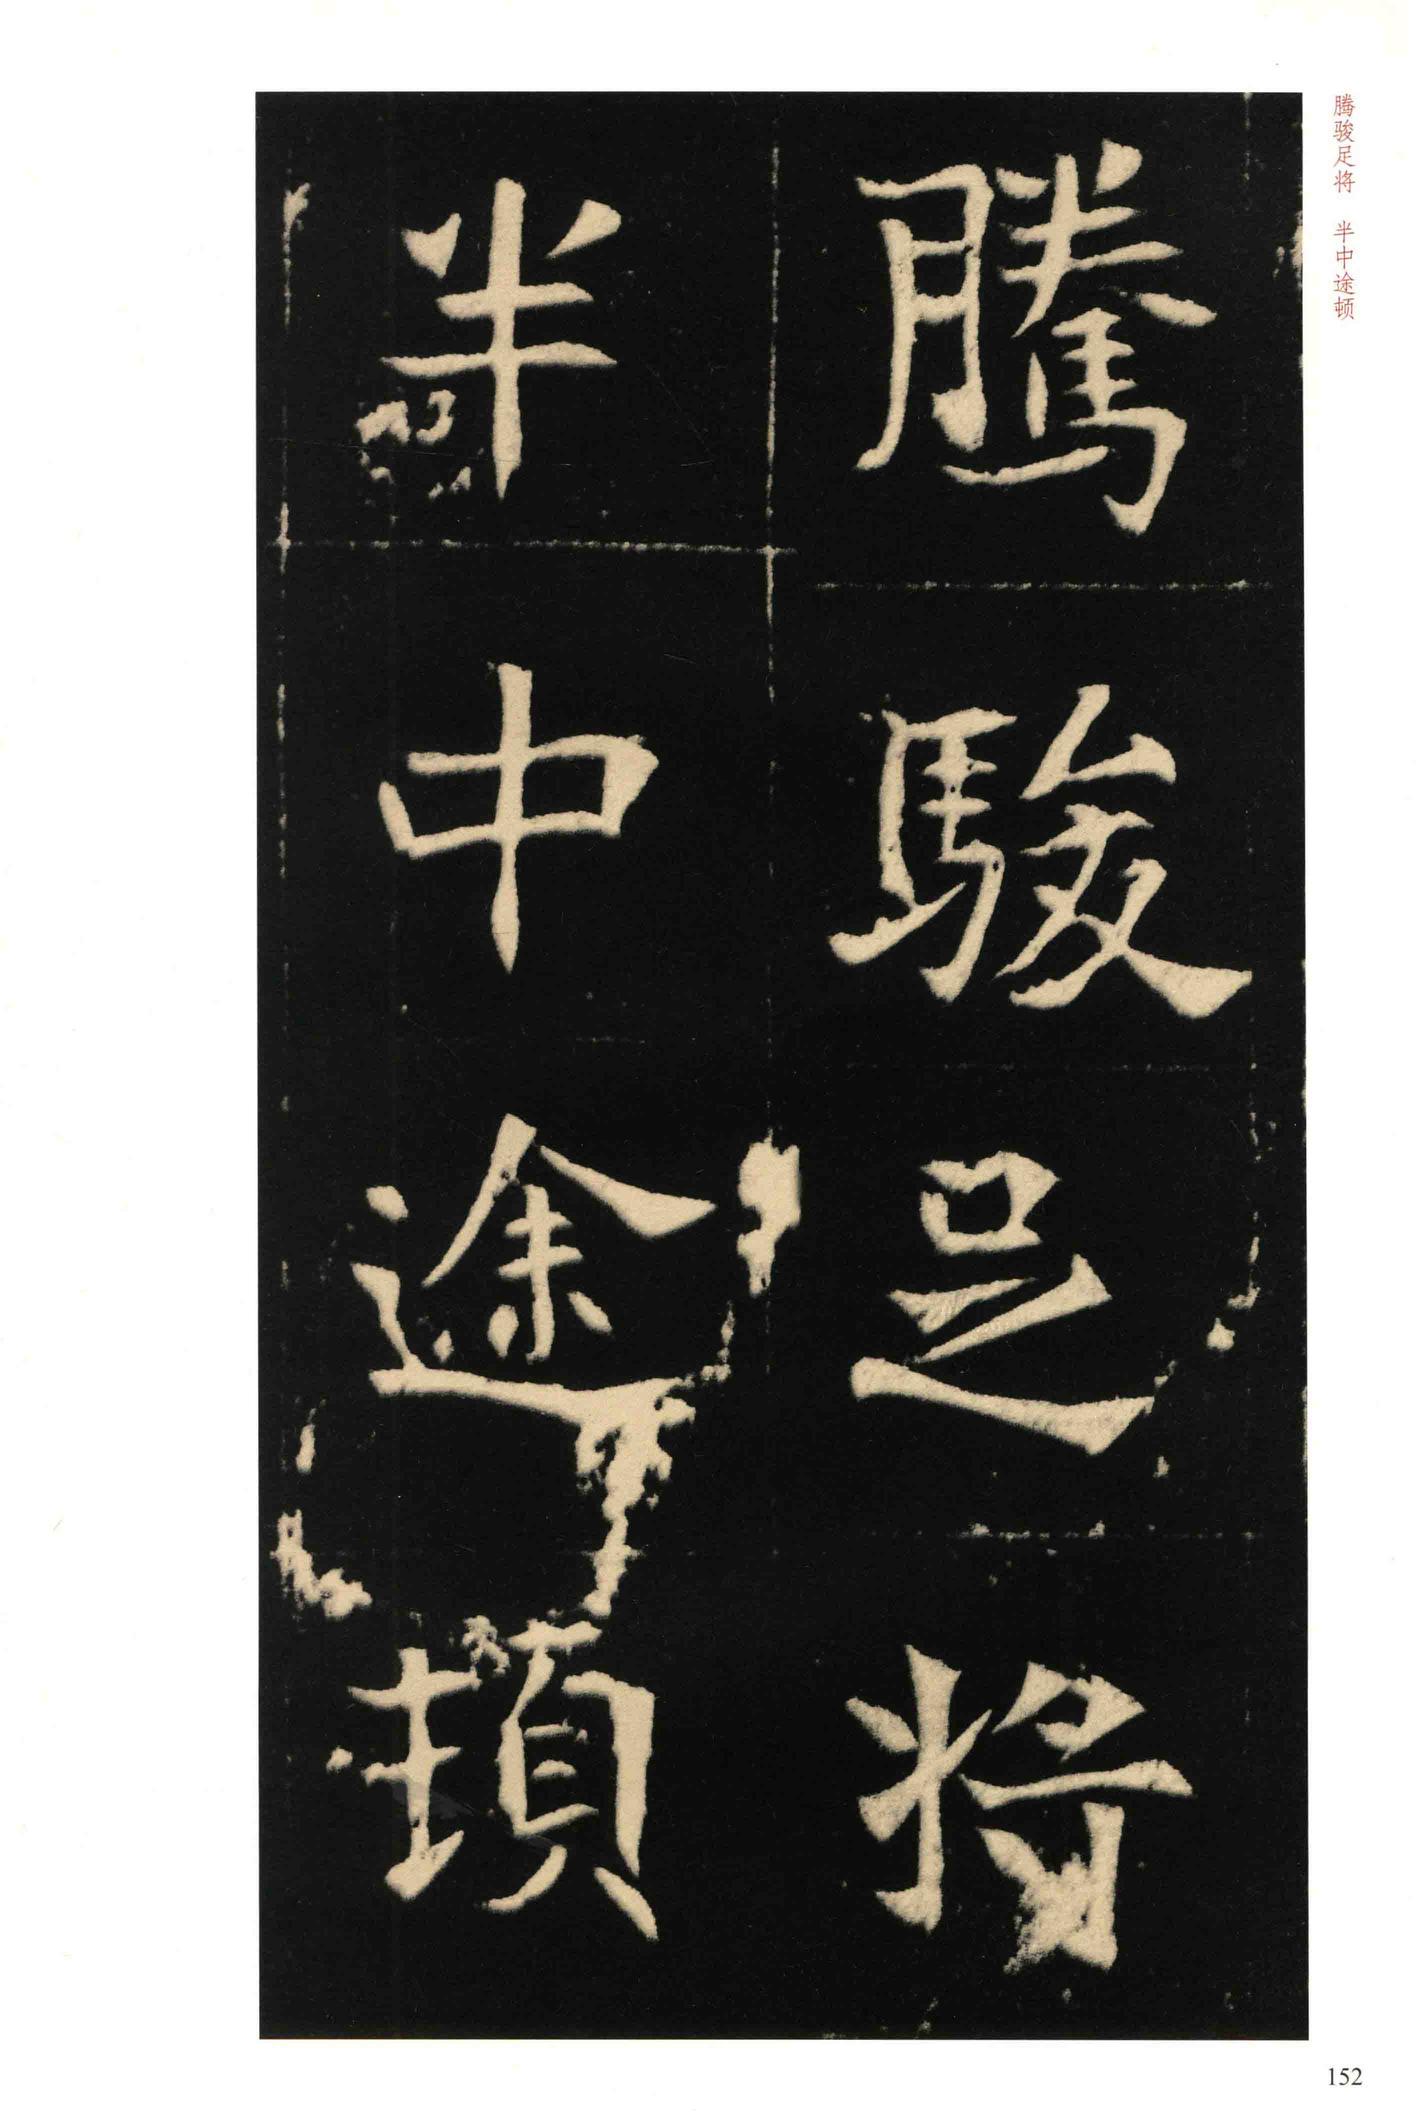 腾骏足将 半中途顿
騰駿足将
半中途頓
152